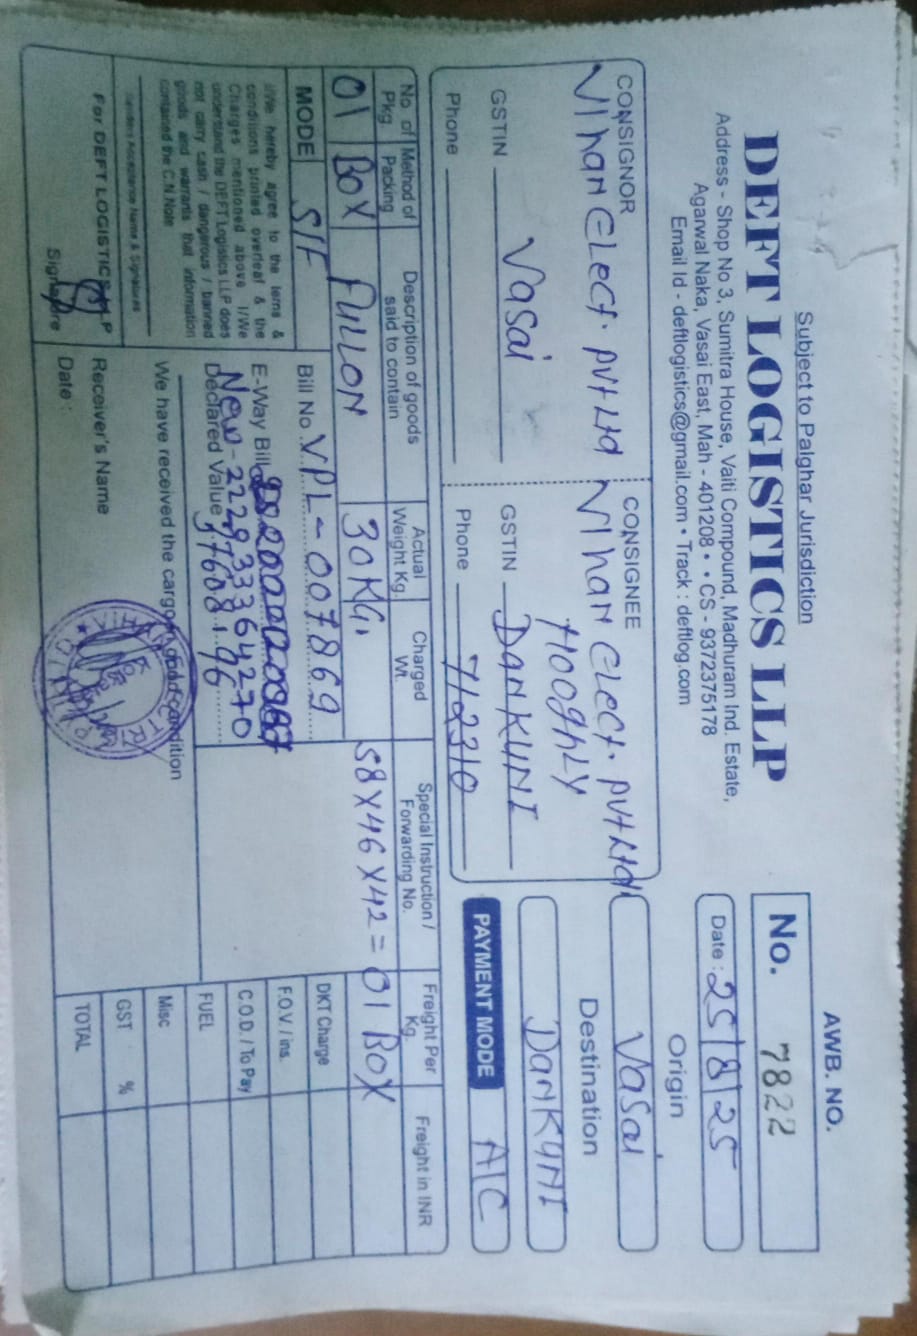 Subject to Palghar Jurisdiction
AWB. NO.
DEFT LOGISTICS LLP
No. 7822
Address - Shop No 3, Sumitra House, Vaiti Compound, Madhuram Ind. Estate,
Agarwal Naka, Vasai East, Mah - 401208 • • CS - 9372375178
Email Id - deftlogistics@gmail.com • Track : deftlog.com
Date : 25/8/25
CONSIGNOR
Vihan ELect. Pvt Ltd
GSTIN
Vasai
Phone
CONSIGNEE
Vihan ELect. Pvt Ltd
HooghLY
GSTIN DANKUNI
Phone 712310
Origin
Vasai
Destination
DANKUNI
PAYMENT MODE A/C
No. of Pkg.
Method of Packing
Description of goods said to contain
Actual Weight Kg.
Charged Wt.
Special Instruction / Forwarding No.
Freight Per Kg.
Freight in INR
01 BOX 30KG. 58X46X42 = 01 BOX
MODE S/F
Bill No. VPL-007869
E-Way Bill
New-222933364270
Declared Value 37608.96
I/We hereby agree to the terns &
conditions printed overleaf & the
Charges mentioned above I/We
understand the DEFT Logistics LLP does
not carry cash / dangerous / banned
goods and warrants that information
contained the C.N.Note
Senders Acceptance Name & Signature
For DEFT LOGISTICS LLP
Signature
We have received the cargo in good condition
Receiver's Name
Date :
DKT Charge
F.O.V. / ins.
C.O.D. / To Pay
FUEL
Misc
GST %
TOTAL